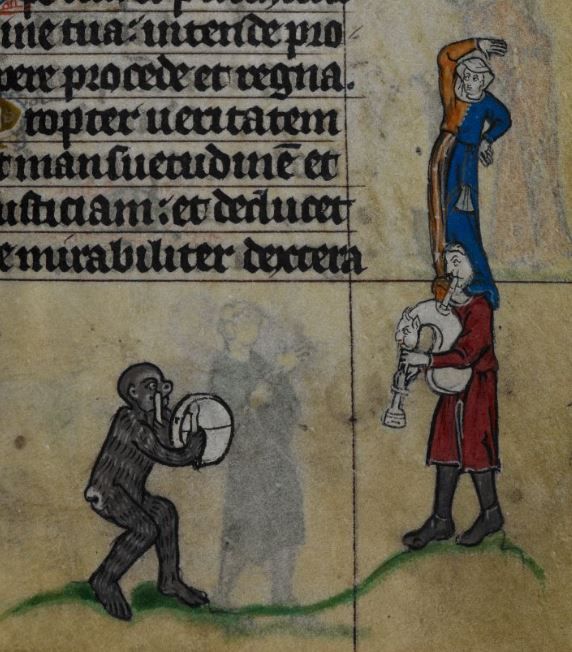 ine tua: intende pro
pere procede et regna.
ropter ueritatem
t mansuetudinē et
usticiam: et deducet
e mirabiliter dextera